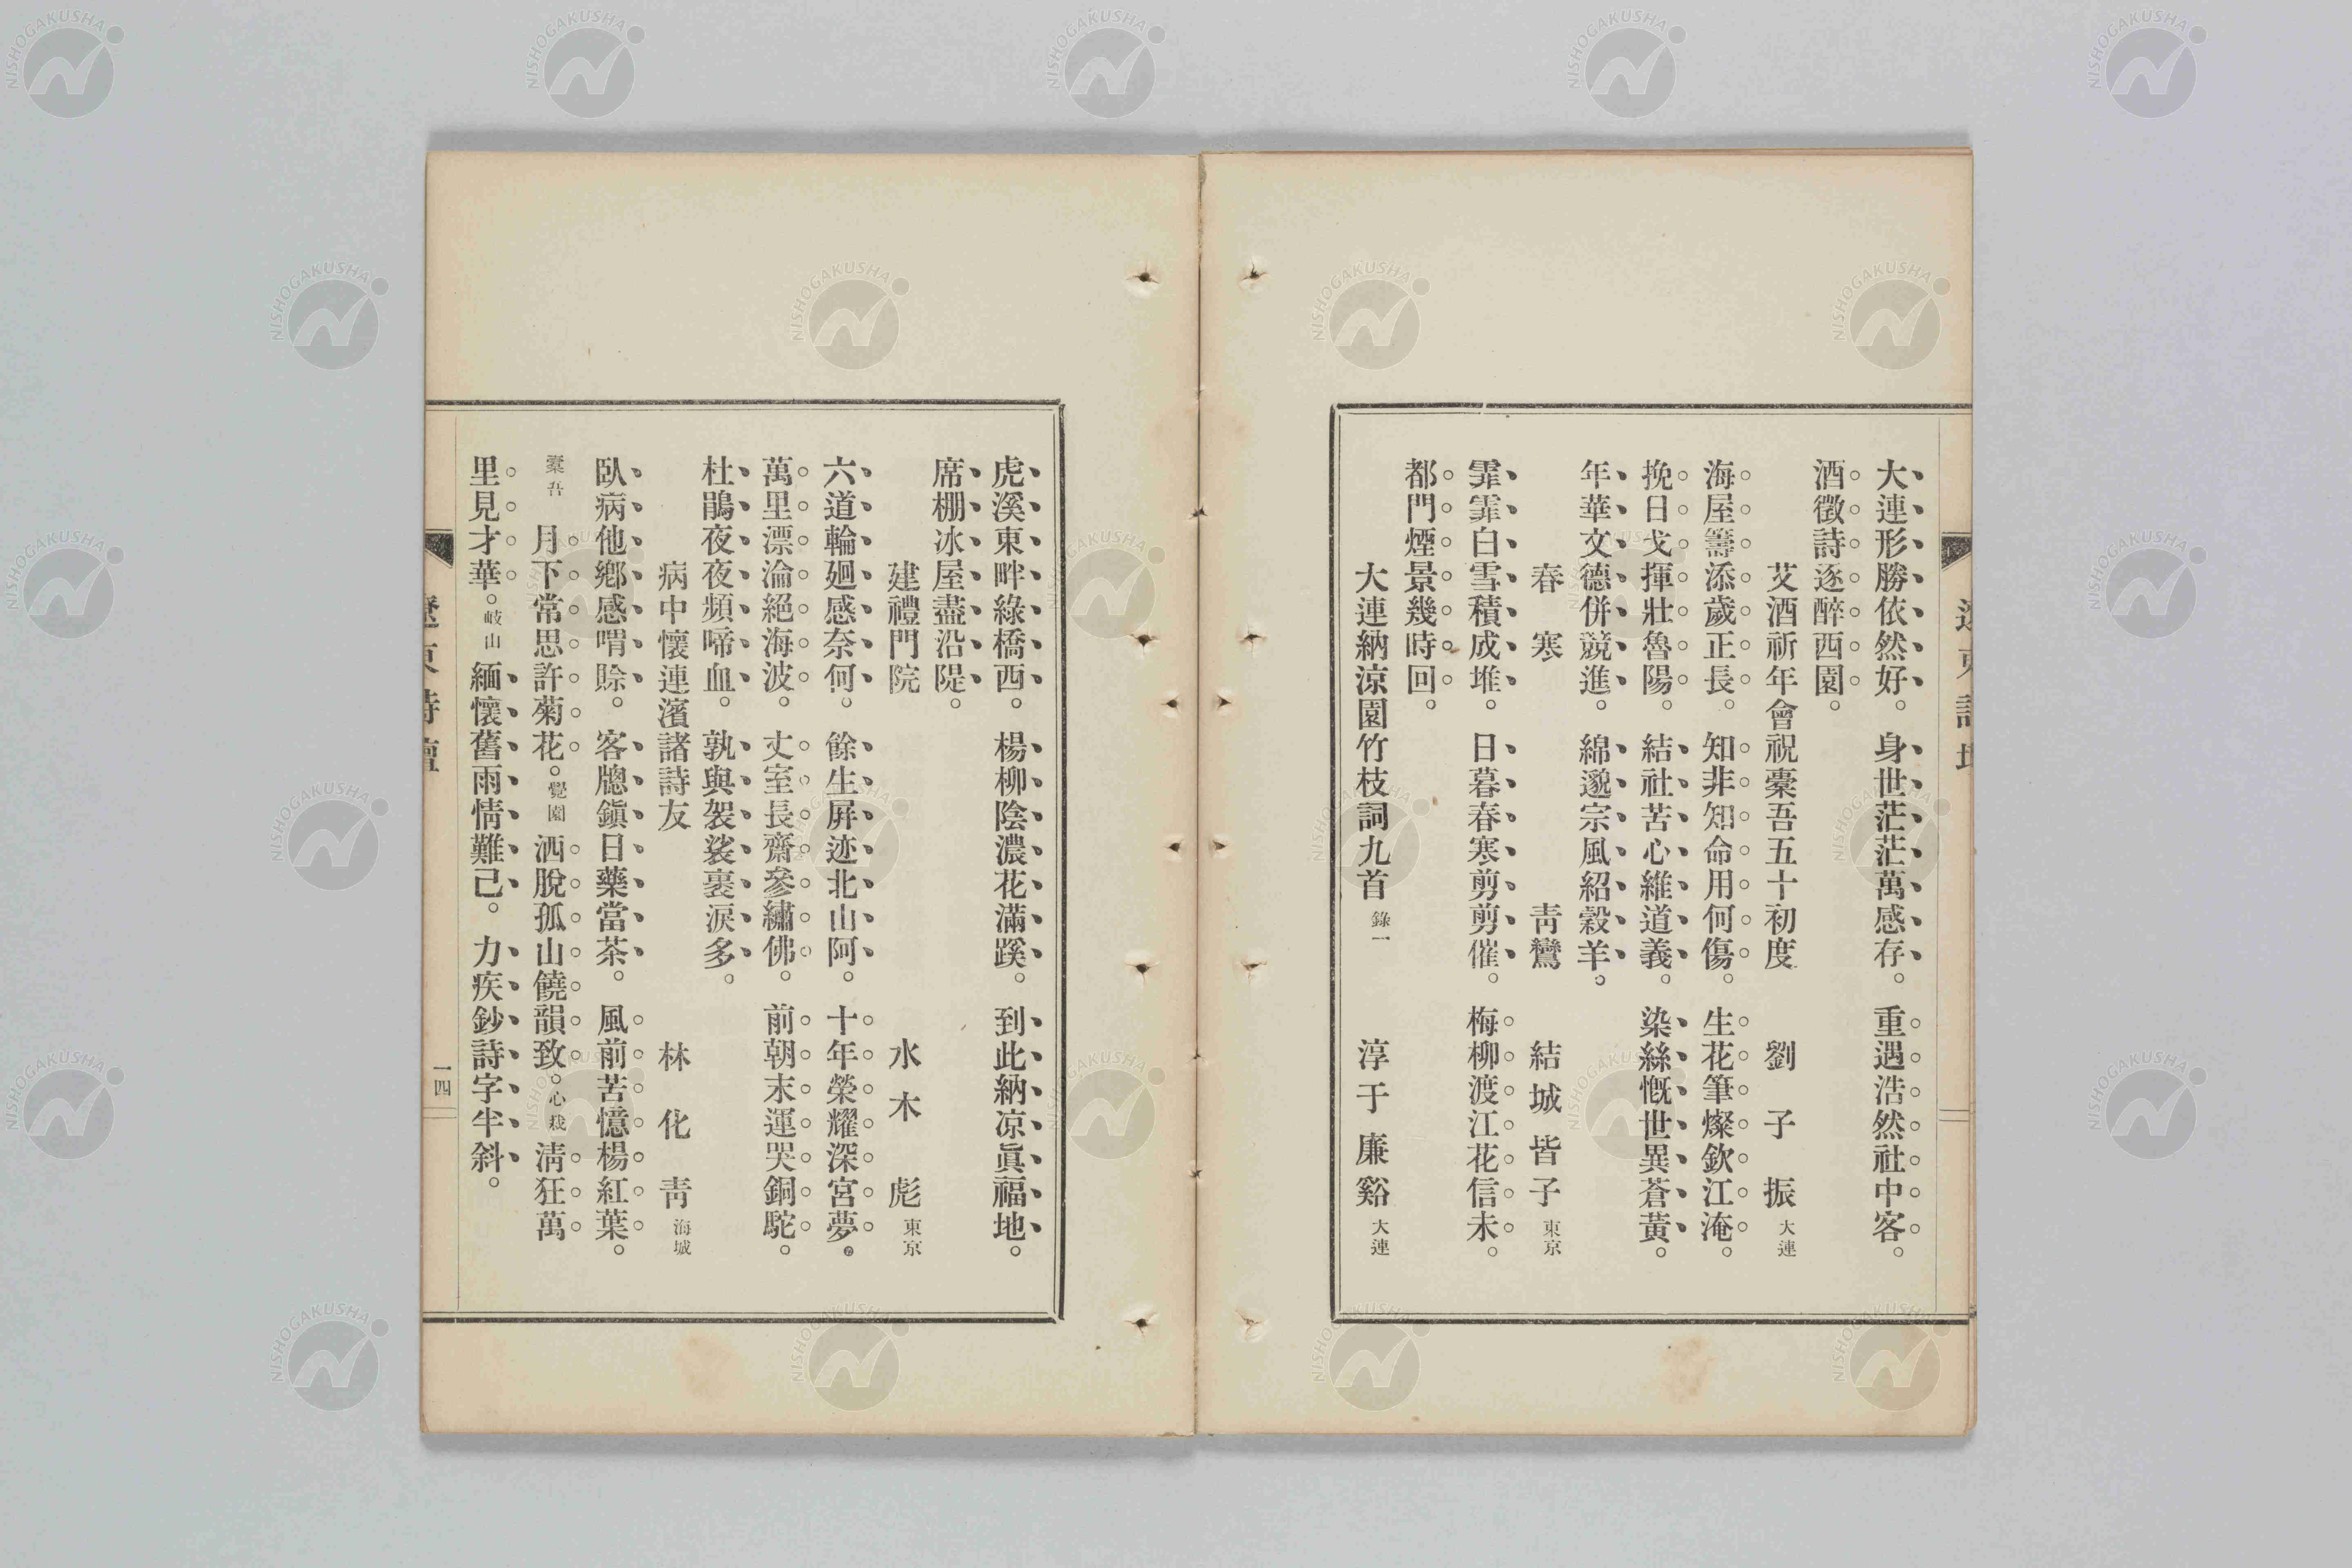 大連形勝依然好。身世茫茫萬感存。重遇浩然社中客。
酒徵詩逐醉西園。
艾酒祈年會祝槖吾五十初度 劉子振 大連
海屋籌添歲正長。知非知命用何傷。生花筆燦欽江淹。
挽日戈揮壯魯陽。結社苦心維道義。染絲慨世異蒼黃。
年華文德併競進。綿邈宗風紹穀羊。
春寒 靑鸞 結城皆子 東京
霏霏白雪積成堆。日暮春寒剪剪催。梅柳渡江花信未。
都門煙景幾時回。
大連納涼園竹枝詞九首 錄一 淳于廉谿 大連
虎溪東畔綠橋西。楊柳陰濃花滿蹊。到此納凉眞福地。
席棚冰屋盡沿隄。
建禮門院 水木彪 東京
六道輪廻感奈何。餘生屛迹北山阿。十年榮耀深宮夢。
萬里漂淪絕海波。丈室長齋參繡佛。前朝末運哭銅駝。
杜鵑夜夜頻啼血。孰與袈裟裹淚多。
病中懷連濱諸詩友 林化靑 海城
臥病他鄕感喟賒。客牕鎭日藥當茶。風前苦憶楊紅葉。
槖吾 月下常思許菊花。覺園 洒脫孤山饒韻致。心栽 淸狂萬
里見才華。岐山 緬懷舊雨情難已。力疾鈔詩字半斜。
遼東詩壇
一四
NISHOGAKUSHA